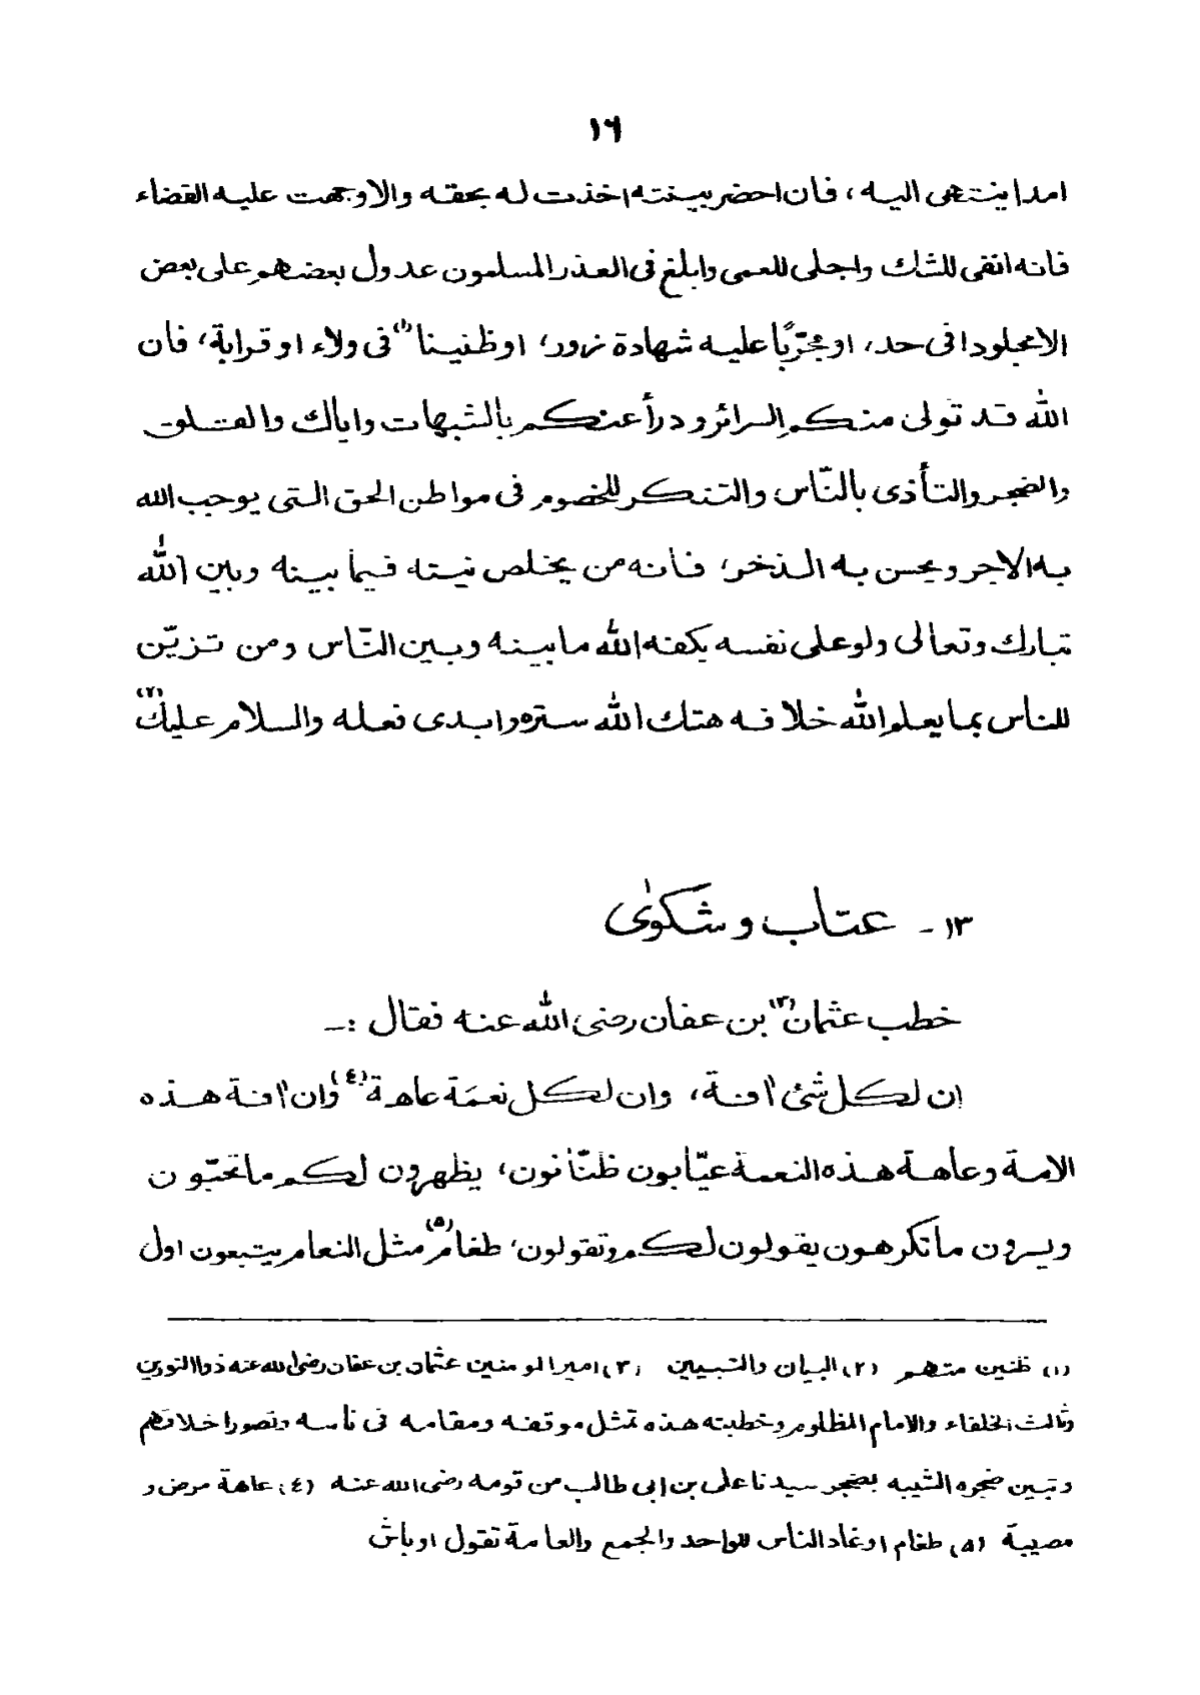 ١٦
امدا ينتهى اليه ، فان احضر بينته اخذت له بحقه والا وجهت عليه القضاء
فانه انقى للشك واجلى للعمى وابلغ فى العذر المسلمون عدول بعضهم على بعض
الا مجلودا فى حد، او مجرّبًا عليه شهادة زور، او ظنينا (١) فى ولاء او قرابة، فان
الله قد تولى منكم السرائر ودرأ عنكم بالشبهات واياك والقلق
والضجر والتأذى بالنّاس والتنكر للخصوم فى مواطن الحق التى يوجب الله
به الاجر ويحسن به الذخر، فانه من يخلص نيته فيما بينه وبين الله
تبارك وتعالى ولو على نفسه يكفه الله ما بينه وبين النّاس ومن تزيّن
للناس بما يعلم الله خلافه هتك الله ستره وابدى فعله والسلام عليك (٢)
١٣ - عتاب و شكوىٰ
خطب عثمان (٣) بن عفان رضى الله عنه فقال :ــ
ان لكل شئ آفة، وان لكل نعمَة عاهة (٤) وان آفة هذه
الامة وعاهة هذه النعمة عيّابون ظنّانون، يظهرون لكم ما تحبّون
ويسرون ما تكرهون يقولون لكم وتقولون، طغام (٥) مثل النعام يتبعون اول
(١) ظنين متهم (٢) البيان والتبيين (٣) امير المومنين عثمان بن عفان رضى الله عنه ذو النورين
وثالث الخلفاء والامام المظلوم وخطبته هذه تمثل موقفه ومقامه فى ناسه وتصور اخلاقهم
وتبين ضجره الشبيه بضجر سيدنا على بن ابى طالب من قومه رضى الله عنه (٤) عاهة مرض و
مصيبة (٥) طغام اوغاد الناس للواحد والجمع والعامة تقول اوباش